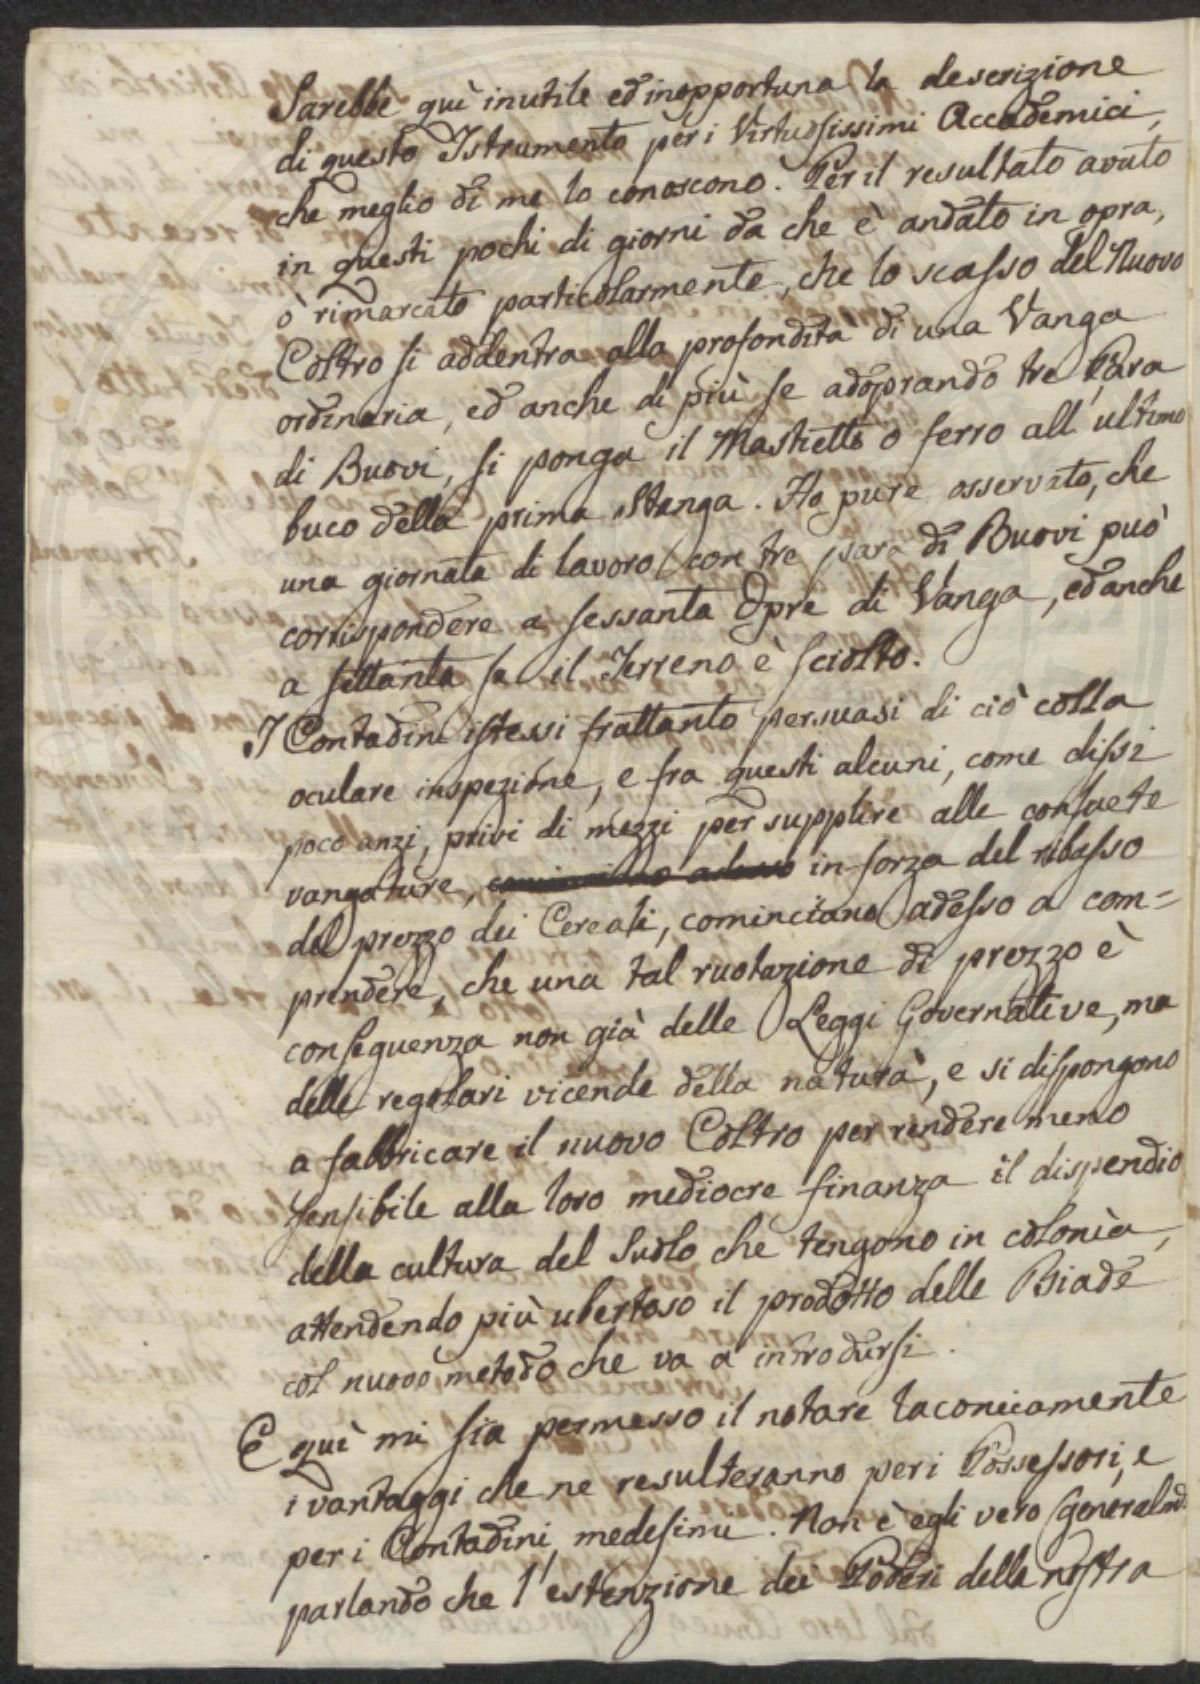 Sarebbe quì inutile ed inopportuna la descrizione
di questo Istrumento per i Virtuosissimi Accademici,
che meglio di me lo conoscono. Per il resultato avuto
in questi pochi di giorni da che è andato in opra,
ò rimarcato particolarmente, che lo scasso del Nuovo
Coltro si addentra alla profondità di una Vanga
ordinaria, ed anche di più se adoprando tre Para
di Buovi, si ponga il Mastietto o ferro all'ultimo
buco della prima Stanga. Ho pure osservato, che
una giornata di lavoro con tre para di Buovi può
corrispondere a sessanta Opre di Vanga, ed anche
a settanta se il Terreno è sciolto.
I Contadini istessi frattanto persuasi di ciò colla
oculare inspezione, e fra questi alcuni, come dissi
poco anzi, privi di mezzi per supplire alle consuete
vangature, cominciano adesso in forza del ribasso
del prezzo dei Cereali, cominciano adesso a com=
prendere, che una tal ruotazione di prezzo è
conseguenza non già delle Leggi Governative, ma
delle regolari vicende della natura, e si dispongono
a fabbricare il nuovo Coltro per rendere meno
sensibile alla loro mediocre finanza il dispendio
della cultura del Suolo che tengono in colonìa,
attendendo più ubertoso il prodotto delle Biade
col nuovo metodo che va a introdursi.
E quì mi sia permesso il notare laconicamente
i vantaggi che ne resulteranno per i Possessori, e
per i Contadini medesimi. Non è egli vero generalm.
parlando che l'estenzione dei Poderi della nostra